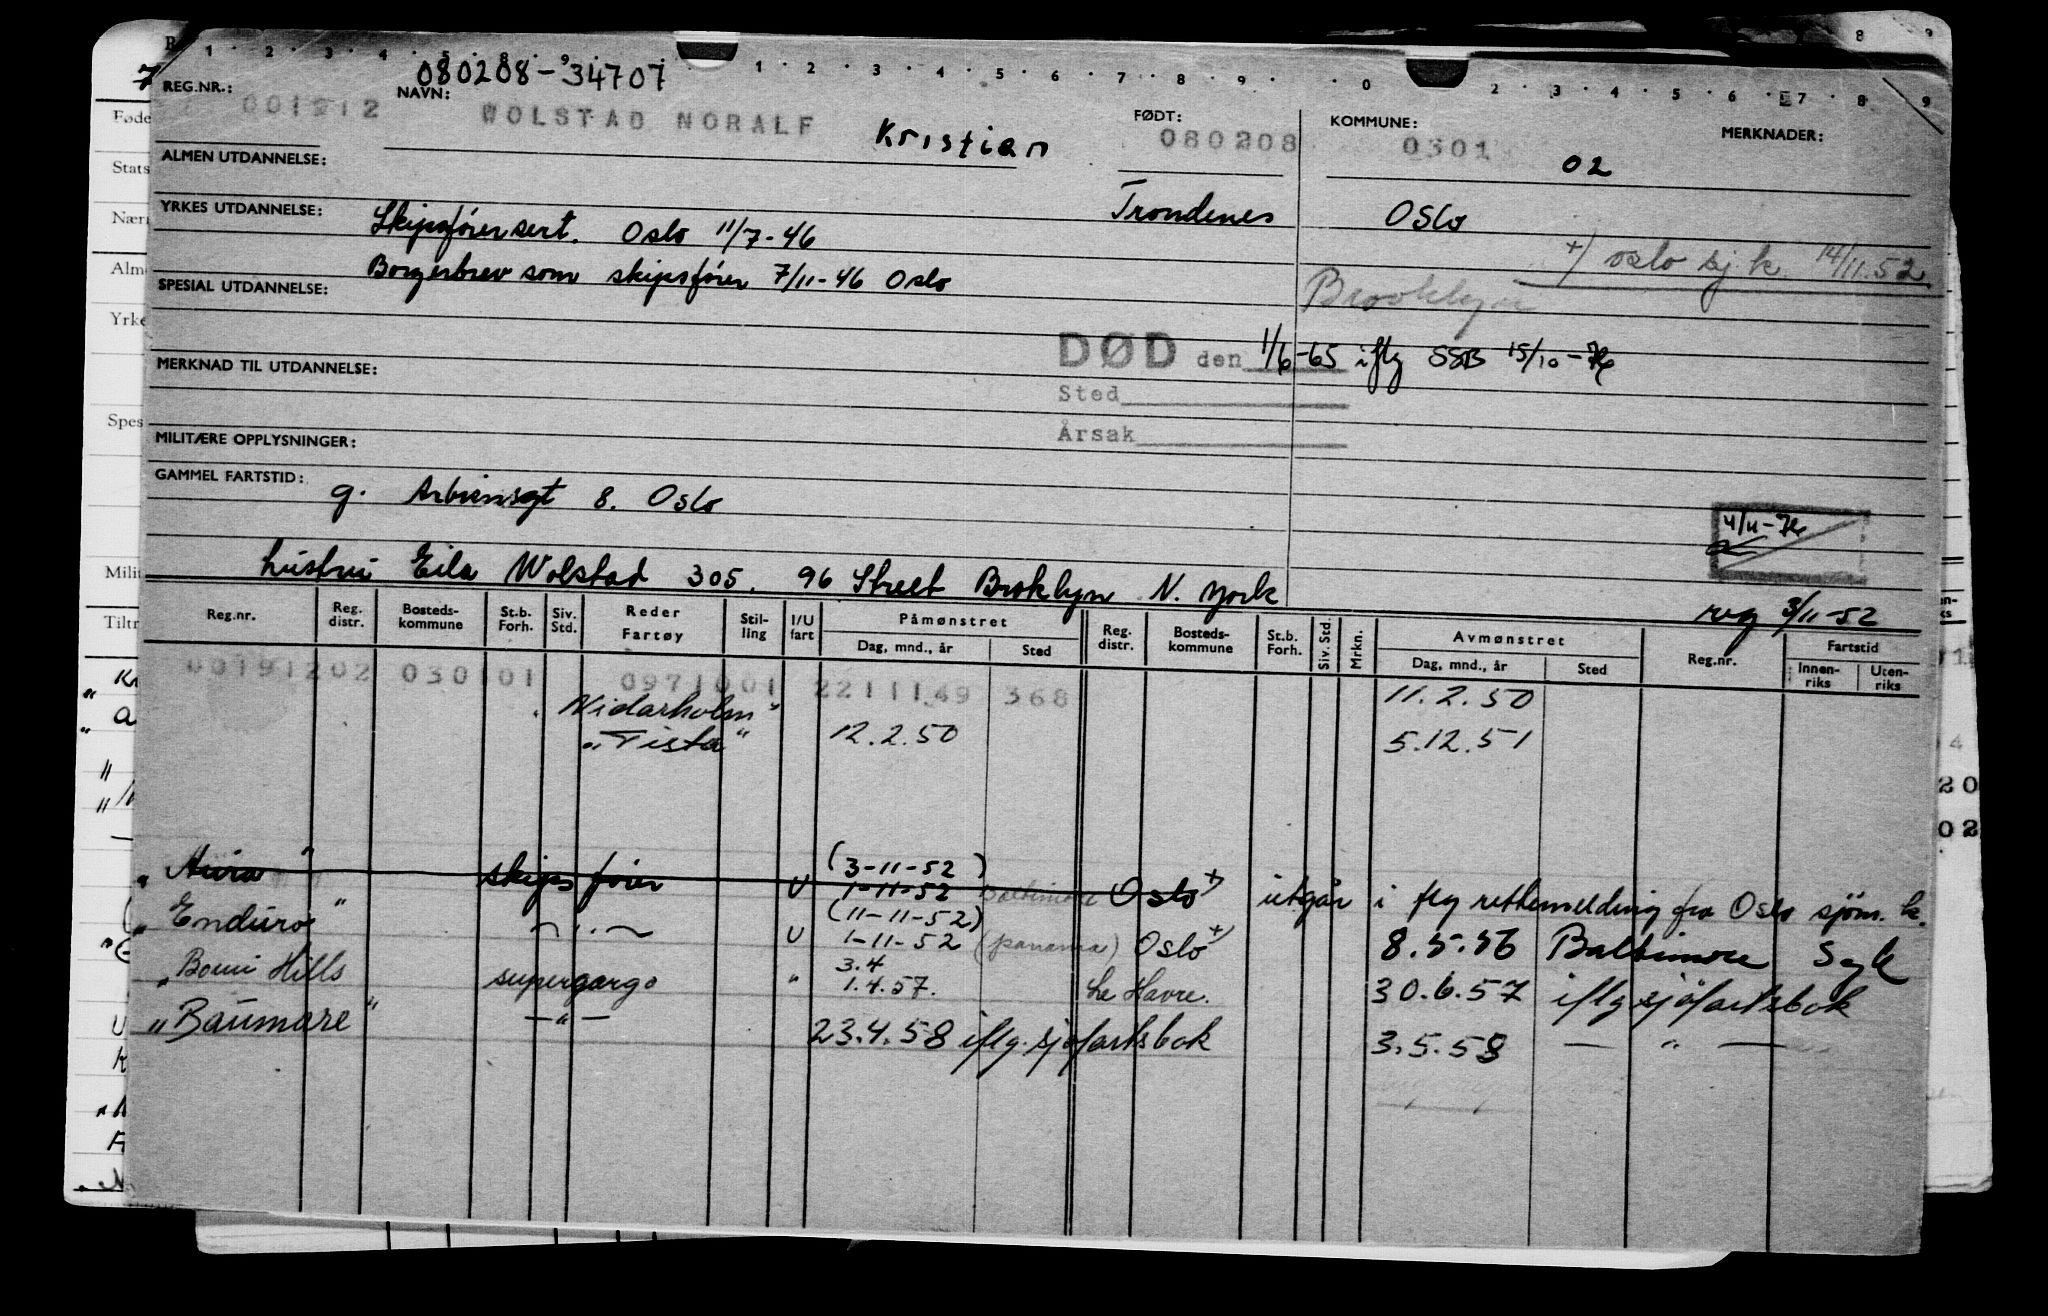 1 2 3 4 5 8 9 1 2 3 4 5 6 7 8 9 0 2 3 4 5 6 7 8 9
080208-34707
REG.NR.: 001912 NAVN: WOLSTAD NORALF Kristian FØDT: 080208 KOMMUNE: 0301 02 MERKNADER:
ALMEN UTDANNELSE:
Trondenes Oslo
YRKES UTDANNELSE: Skipsførersert. Oslo 11/7-46
+) oslo sj.k 14/11.52.
Borgerbrev som skipsfører 7/11-46 Oslo
SPESIAL UTDANNELSE:
Brooklyn
DØD den 1/6-65 iflg SSB 15/10-76
MERKNAD TIL UTDANNELSE:
Sted
Årsak
MILITÆRE OPPLYSNINGER:
GAMMEL FARTSTID:
g. Arbiensgt 8. Oslo
4/11-76
hustru Eila Wolstad 305. 96 Street Broklyn N. York
reg 3/11-52
Reg.nr. Reg. distr. Bosteds-kommune St.b. Forh. Siv. Std. Reder Fartøy Stil-ling I/U fart Påmønstret Dag, mnd., år Sted Reg. distr. Bosteds-kommune St.b. Forh. Siv. Std. Mrkn. Avmønstret Dag, mnd., år Sted Reg.nr. Fartstid Innen-riks Uten-riks
00191202 030101 0971001 221149 368
"Nidarholm" 11.2.50
"Tista" 12.2.50 5.12.51
(3-11-52)
"Avira" skipsfører U 1-11-52 Baltimore Oslo +) utgår i flg rettemelding fra Oslo sjøm. k.
(11-11-52)
"Enduro" -"- U 1-11-52 (panama) Oslo +) 8.5.56 Baltimore Syk
3.4
"Bomi Hills supergargo " 1.4.57. Le Havre. 30.6.57 iflg sjøfartsbok
"Baumare" -"- 23.4.58 iflg. sjøfartsbok 3.5.58 - " -